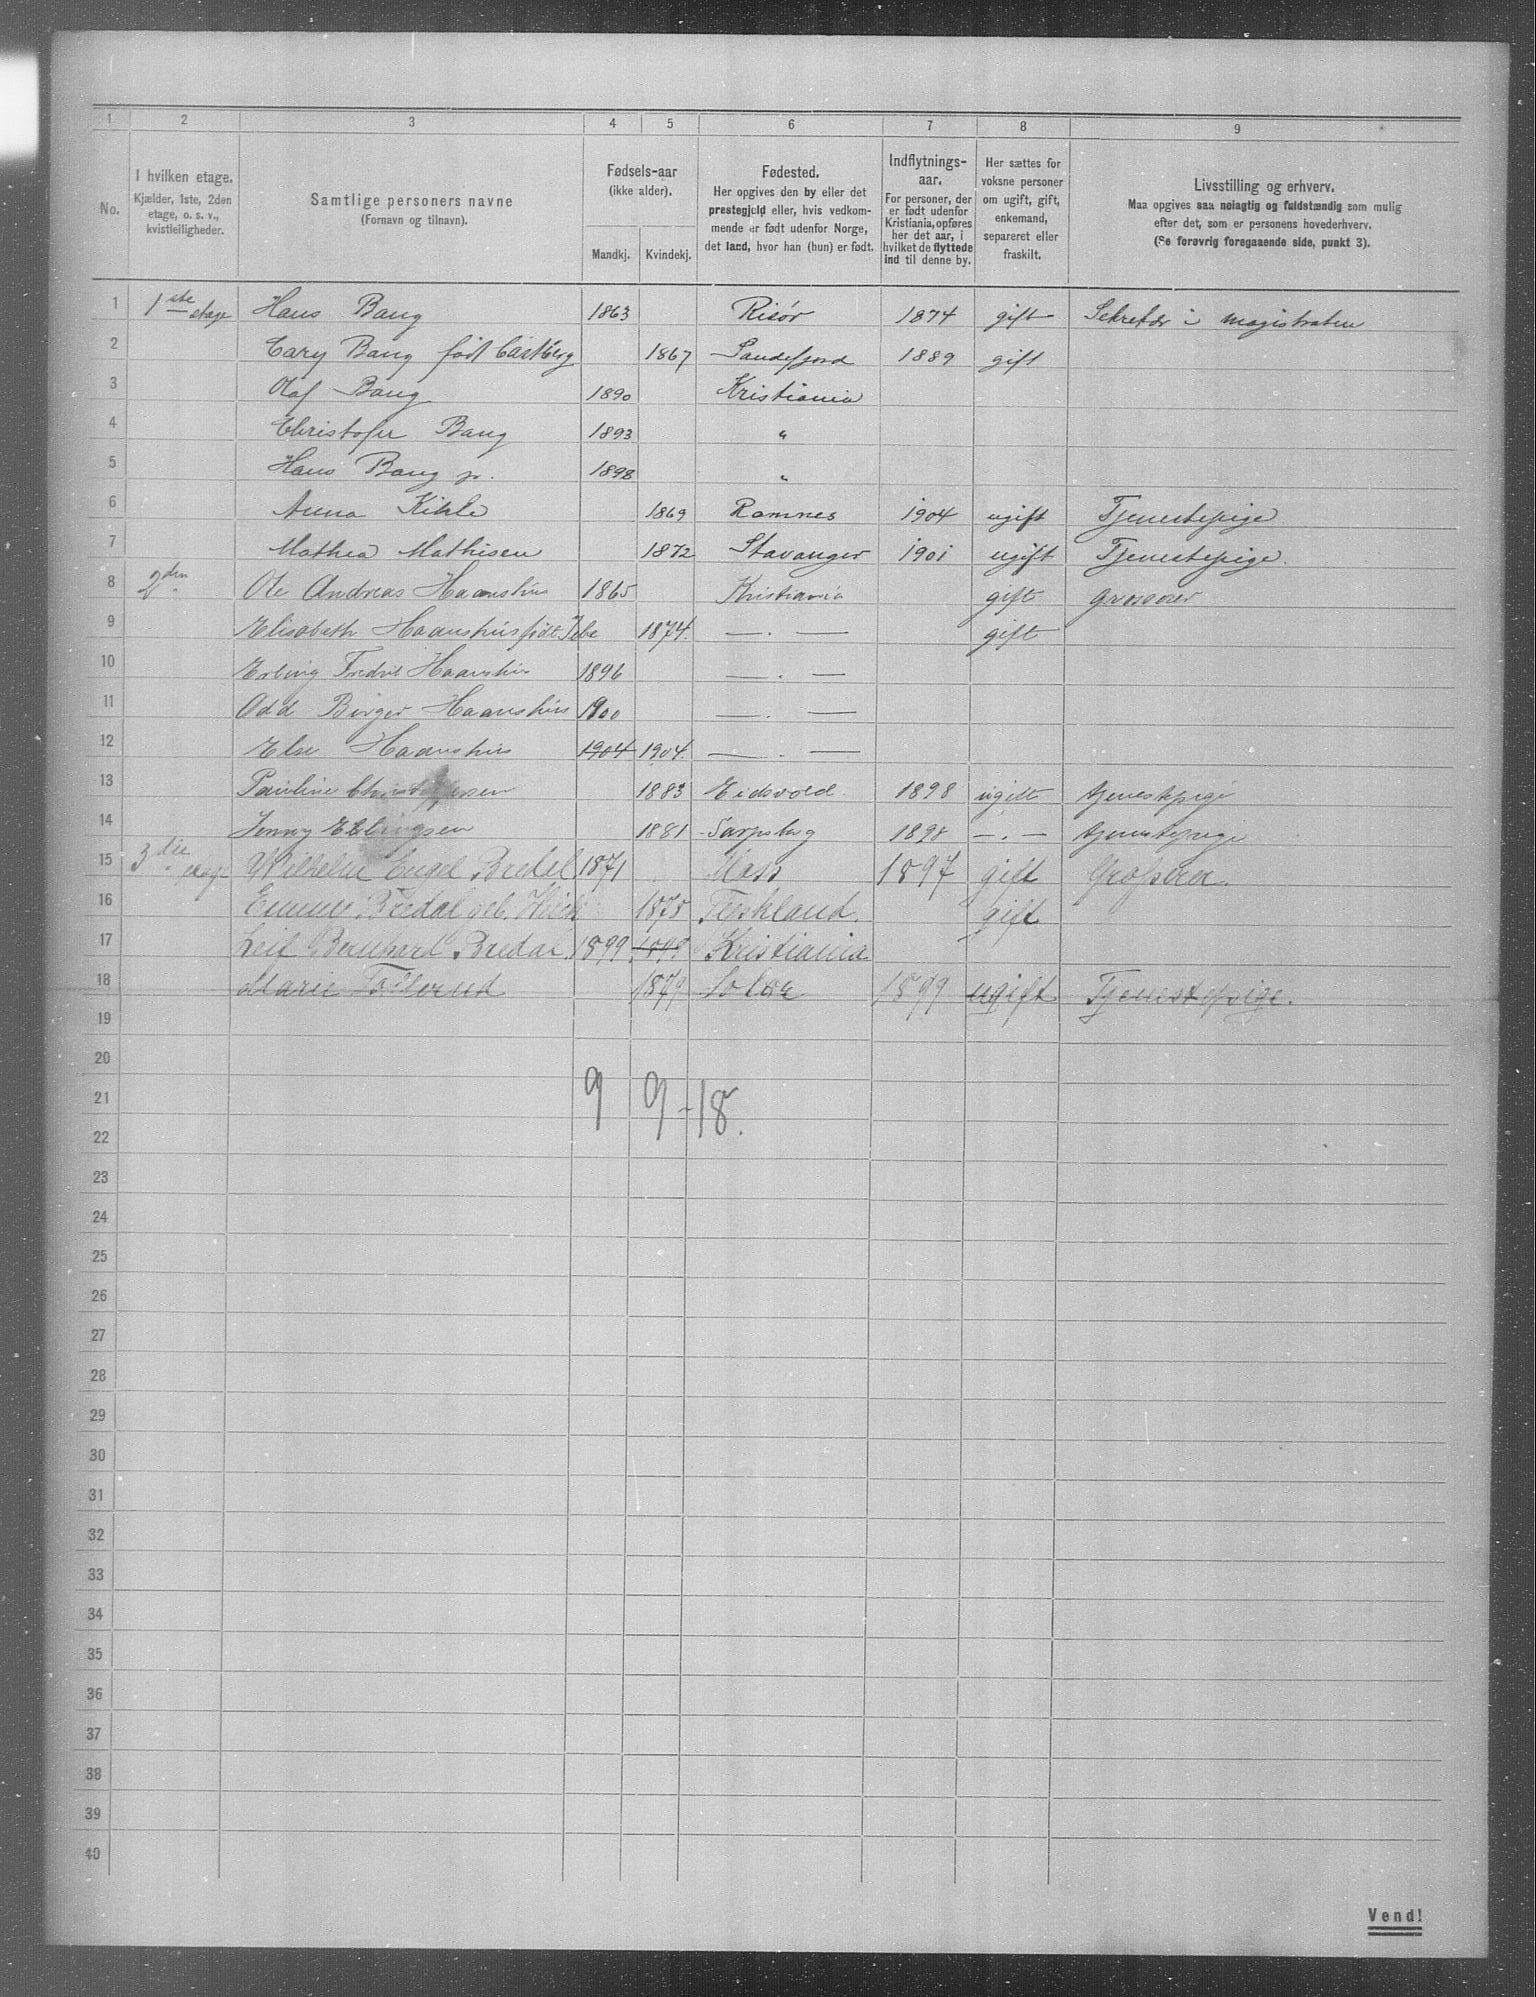 1 2 3 4 5 6 7 8 9
No.
I hvilken etage.
Kjælder, 1ste, 2den
etage, o. s. v.,
kvistleiligheder.
Samtlige personers navne
(Fornavn og tilnavn).
Fødsels-aar
(ikke alder).
Mandkj. Kvindekj.
Fødested.
Her opgives den by eller det
prestegjeld eller, hvis vedkom-
mende er født udenfor Norge,
det land, hvor han (hun) er født.
Indflytnings-
aar.
For personer, der
er født udenfor
Kristiania, opføres
her det aar, i
hvilket de flyttede
ind til denne by.
Her sættes for
voksne personer
om ugift, gift,
enkemand,
separeret eller
fraskilt.
Livsstilling og erhverv.
Maa opgives saa nøiagtig og fuldstændig som mulig
efter det, som er personens hovederhverv.
(Se forøvrig foregaaende side, punkt 3).
1 1ste etage Hans Bang 1863 Risør 1874 gift Sekretær i magistraten
2 Cary Bang født Castberg 1867 Sandefjord 1889 gift
3 Olaf Bang 1890 Kristiania
4 Christofer Bang 1893 "
5 Hans Bang jr. 1898 "
6 Anna Kihle 1869 Ramnes 1904 ugift Tjenestepige
7 Mathea Mathisen 1872 Stavanger 1901 ugift Tjenestepige.
8 2den Ole Andreas Haanshus 1865 Kristiania gift Grosserer
9 Elisabeth Haanshus født 1874. — . — gift
10 Erling Fredrik Haanshus 1896 — . —
11 Odd Birger Haanshus 1900 — . —
12 Else Haanshus 1904 1904. — . —
13 Pauline Christophersen 1883 Eidsvold. 1898 ugift tjenestepige
14 Jenny Ellingsen 1881 Sarpsborg 1898 — . — tjenestepige
15 3die etage Wilhelm Engel Bredal 1871 Moss 1897 gift Grosserer.
16 Emmy Bredal geb. 1878 Tyskland. gift
17 Leif Bernhard Bredal 1899 1899 Kristiania
18 Marie 1879 Solør 1899 ugift Tjenestepige.
19
20
21 9 9 - 18.
22
23
24
25
26
27
28
29
30
31
32
33
34
35
36
37
38
39
40
Vend!